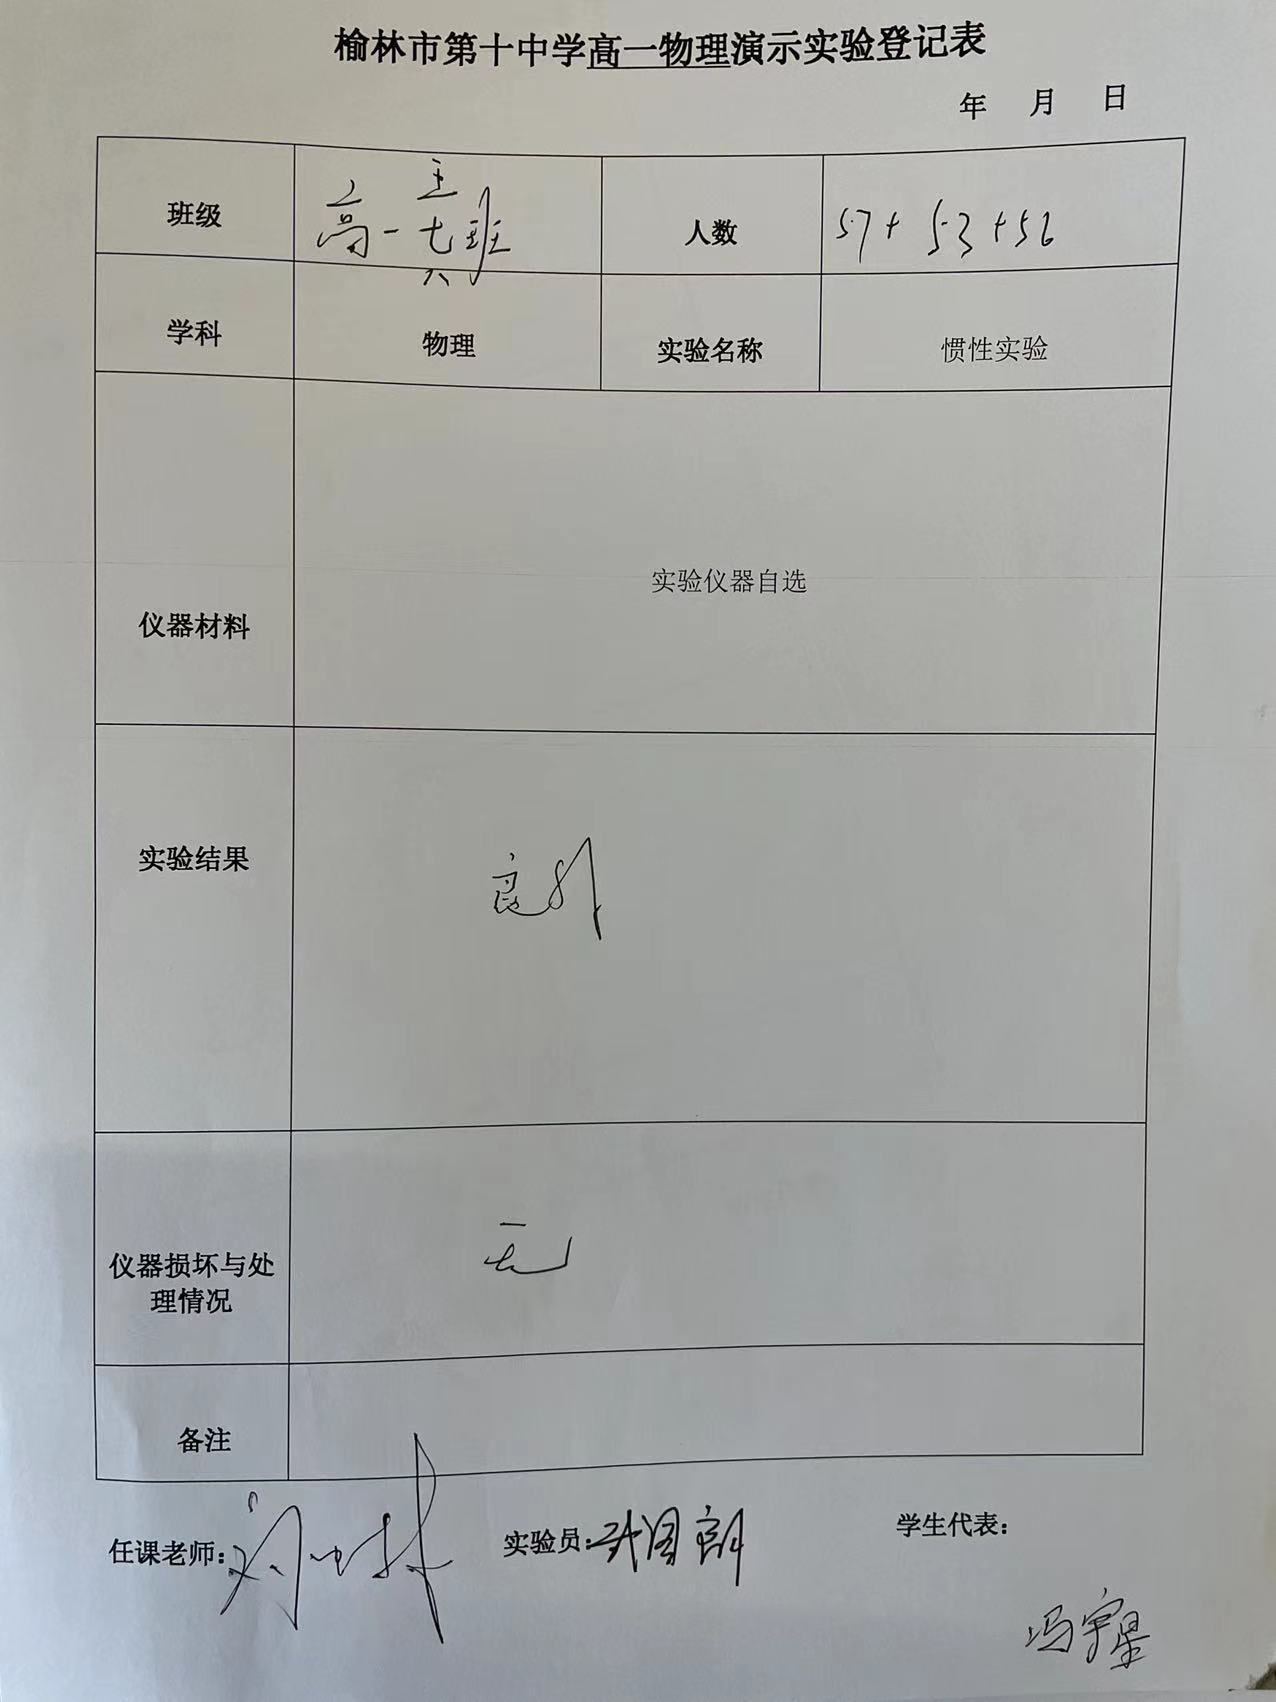 榆林市第十中学高一物理演示实验登记表
年 月 日
班级
高一七班
六
人数
57+53+56
学科
物理
实验名称
惯性实验
仪器材料
实验仪器自选
实验结果
良好
仪器损坏与处
理情况
无
备注
任课老师:
实验员:
学生代表:
冯宇星